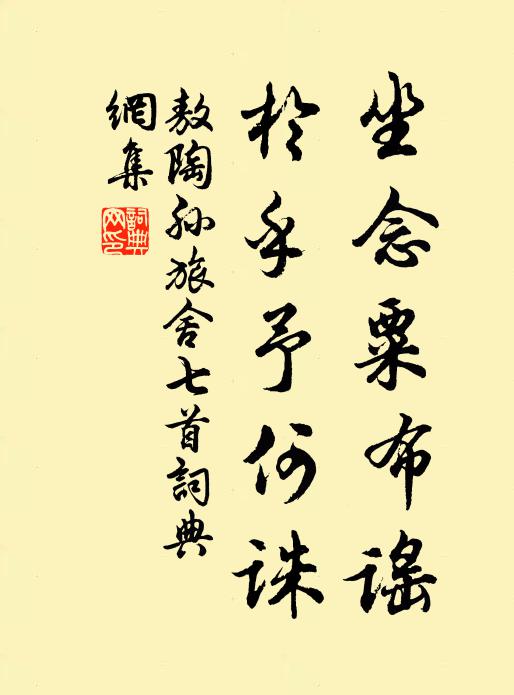 坐念粟布謠
於乎予何誅
敖陶孫旅舍七首詞典
網集
詞典網印